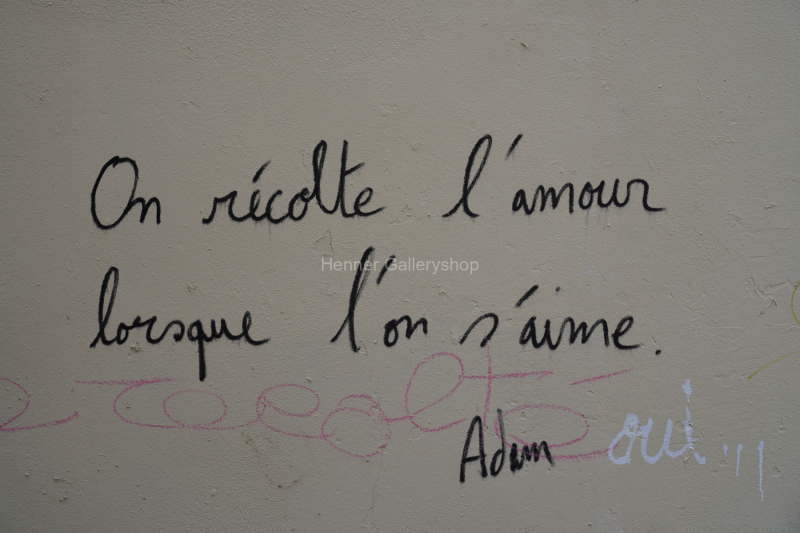 On récolte l'amour
lorsque l'on s'aime.
Henner Galleryshop
récolte
Adam
oui